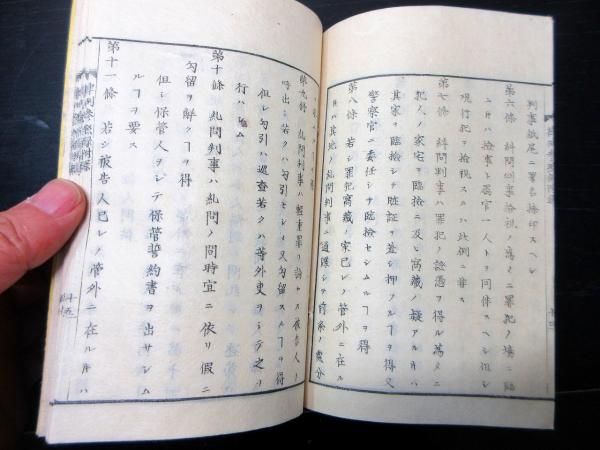 判事紙尾ニ署名捺印スヘシ
第六條 糾問判事檢視ノ爲メニ罪犯ノ塲ニ臨
ニハ檢事ト屬官一人トヲ同伴スヘシ但シ
現行犯ヲ檢視スルハ此例ニ非ス
第七條 糾問判事ハ罪犯ノ證憑ヲ得ル爲メニ
犯人ノ家宅ヲ臨檢シ及ヒ窩藏ノ疑アル片ハ
其家ヲ臨檢シテ贓証ヲ差シ押フルヿヲ得又
警察官ニ委任シテ臨檢セシムルヿヲ得
第八條 若シ罪犯窩藏ノ家已レノ管外ニ在ル
片ハ其地ノ糺問判事ニ通牒シテ前条ノ處分
第九條 糺問判事ハ輕重罪ヲ論セス被告人ヲ
呼出シ若クハ勾引セシメ又勾留スルヿヲ得
但シ勾引ハ巡査若クハ等外吏ヲシテ之ヲ
行ハシム
第十條 糺問判事ハ糺問ノ間時宜ニ依リ假ニ
勾留ヲ解クヿヲ得
但シ保管人ヲシテ保管誓約書ヲ出サシム
ルヿヲ要ス
第十一條 若シ被告人已レノ管外ニ在ル片ハ